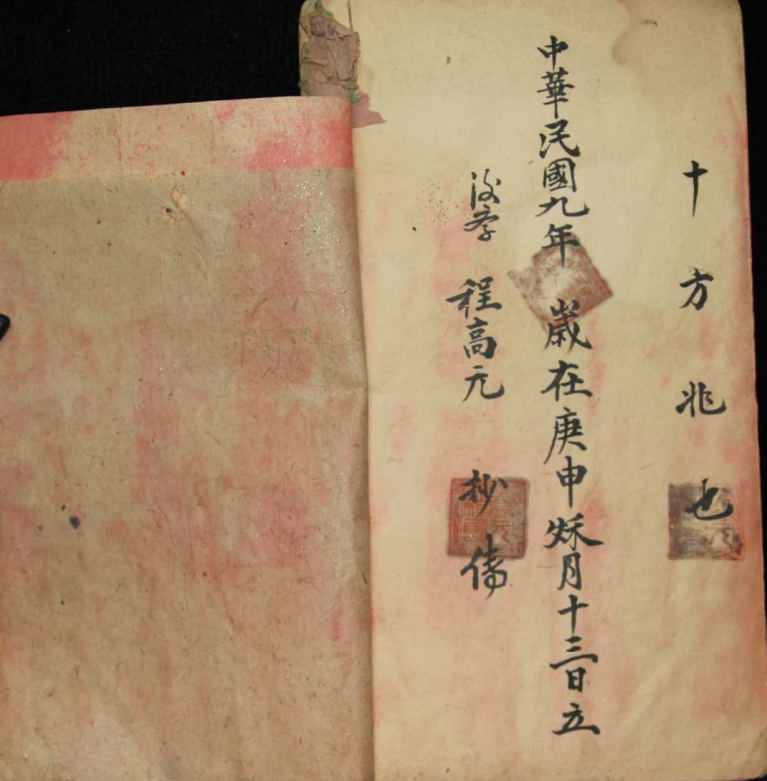 十方兆也
中華民國九年 歲在庚申秌月十三日立
後学 程高元 抄俻